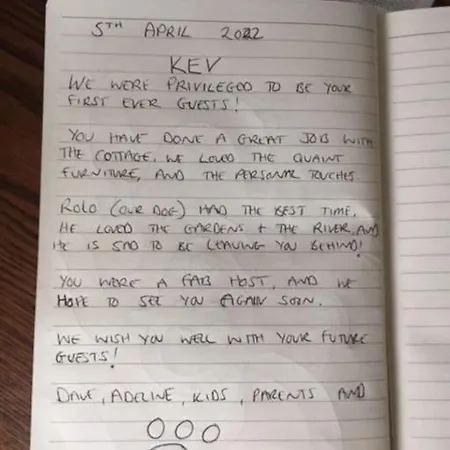 5TH APRIL 2022
KEV
WE WERE PRIVILEGED TO BE YOUR
FIRST EVER GUESTS!
YOU HAVE DONE A GREAT JOB WITH
THE COTTAGE. WE LOVED THE QUAINT
FURNITURE, AND THE PERSONAL TOUCHES.
ROLO (OUR DOG) HAD THE BEST TIME.
HE LOVED THE GARDENS + THE RIVER, AND
HE IS SAD TO BE LEAVING YOU BEHIND!
YOU WERE A FAB HOST, AND WE
HOPE TO SEE YOU AGAIN SOON.
WE WISH YOU WELL WITH YOUR FUTURE
GUESTS!
DAVE, ADELINE, KIDS, PARENTS AND